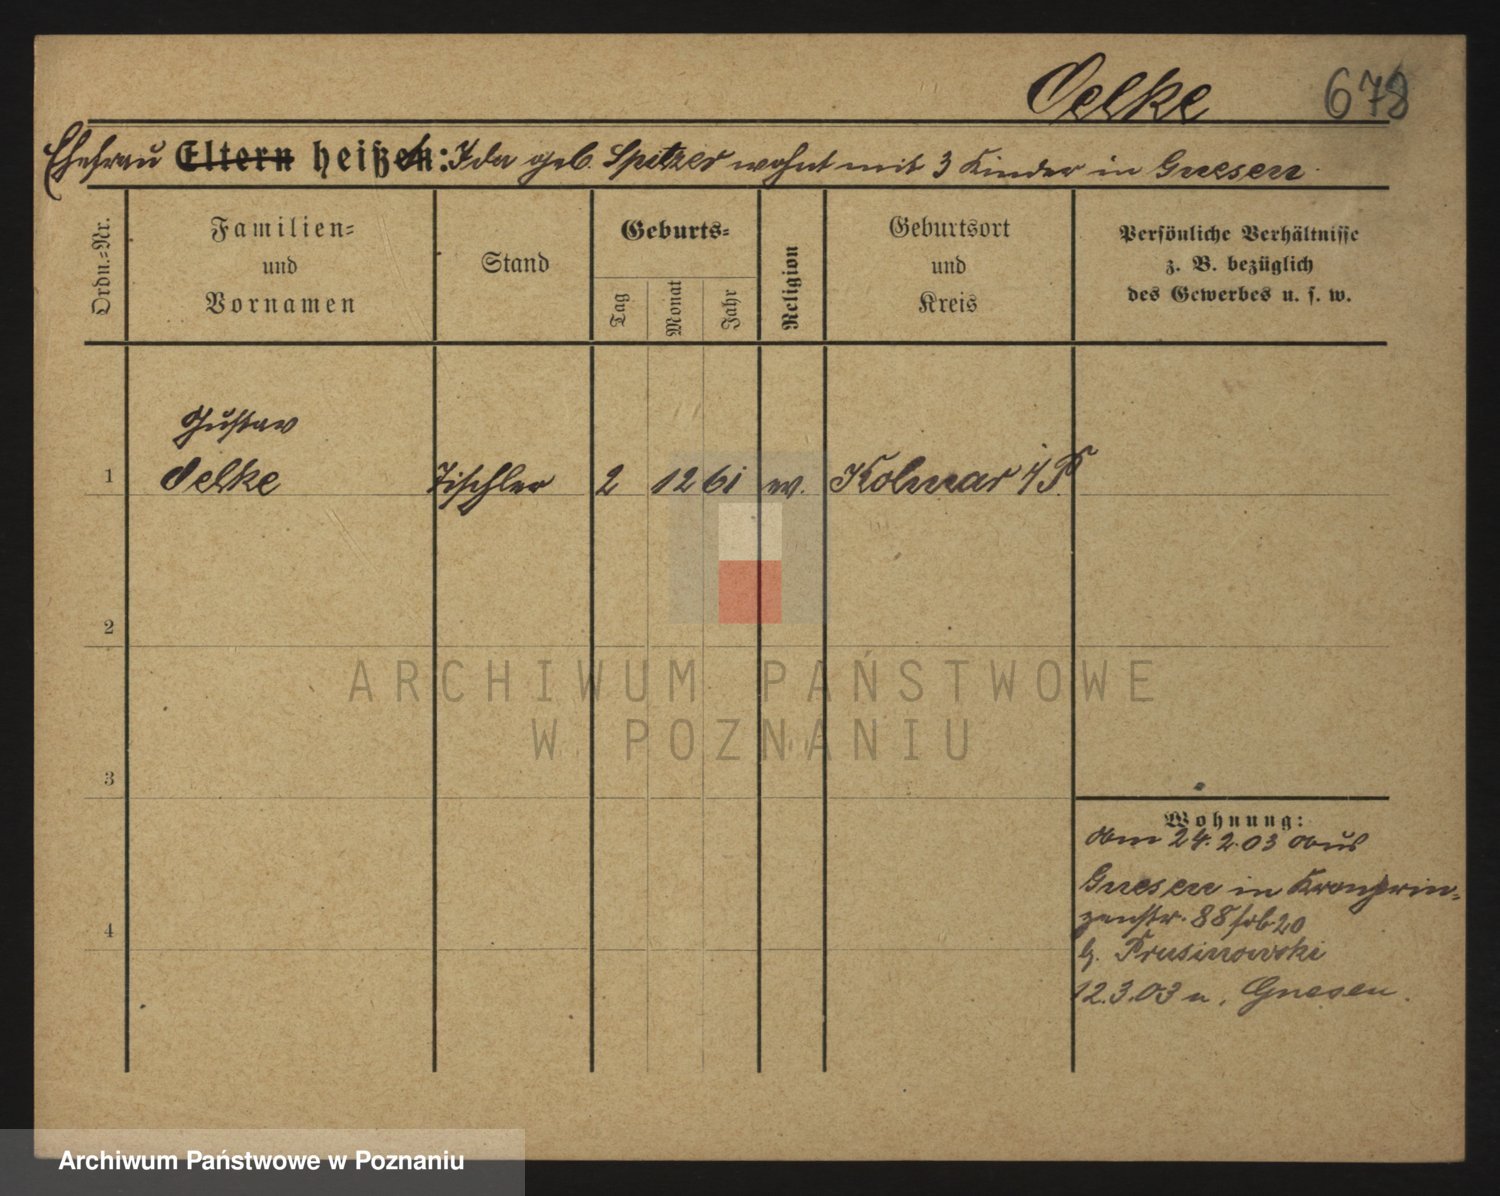 Oelke 678
Ehefrau Eltern heißen: Ida geb. Spitzer wohnt mit 3 Kinder in Gnesen.
Ordn.-Nr.
Familien-
und
Vornamen
Stand
Geburts-
Tag
Monat
Jahr
Religion
Geburtsort
und
Kreis
Persönliche Verhältnisse
z. B. bezüglich
des Gewerbes u. s. w.
Gustav
1 Oelke Tischler 2 12 61 Kolmar i/P
2
3
4
Wohnung:
Am 24.2.03 aus
Gnesen in Kronprin-
zenstr. 88
b. Prusinowski
12.3.03 n. Gnesen.
ARCHIWUM PAŃSTWOWE
W POZNANIU
Archiwum Państwowe w Poznaniu